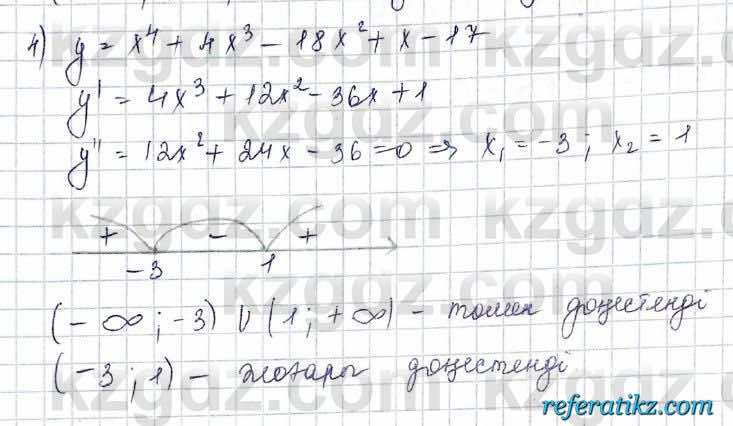 4) y = x⁴ + 4x³ - 18x² + x - 17
y' = 4x³ + 12x² - 36x + 1
y'' = 12x² + 24x - 36 = 0 ⇒ x₁ = -3; x₂ = 1
+ - +
-3 1
(-∞; -3) ∪ (1; +∞) - төмен дөңестенді
(-3; 1) - жоғары дөңестенді
kzgdz.com
referatikz.com